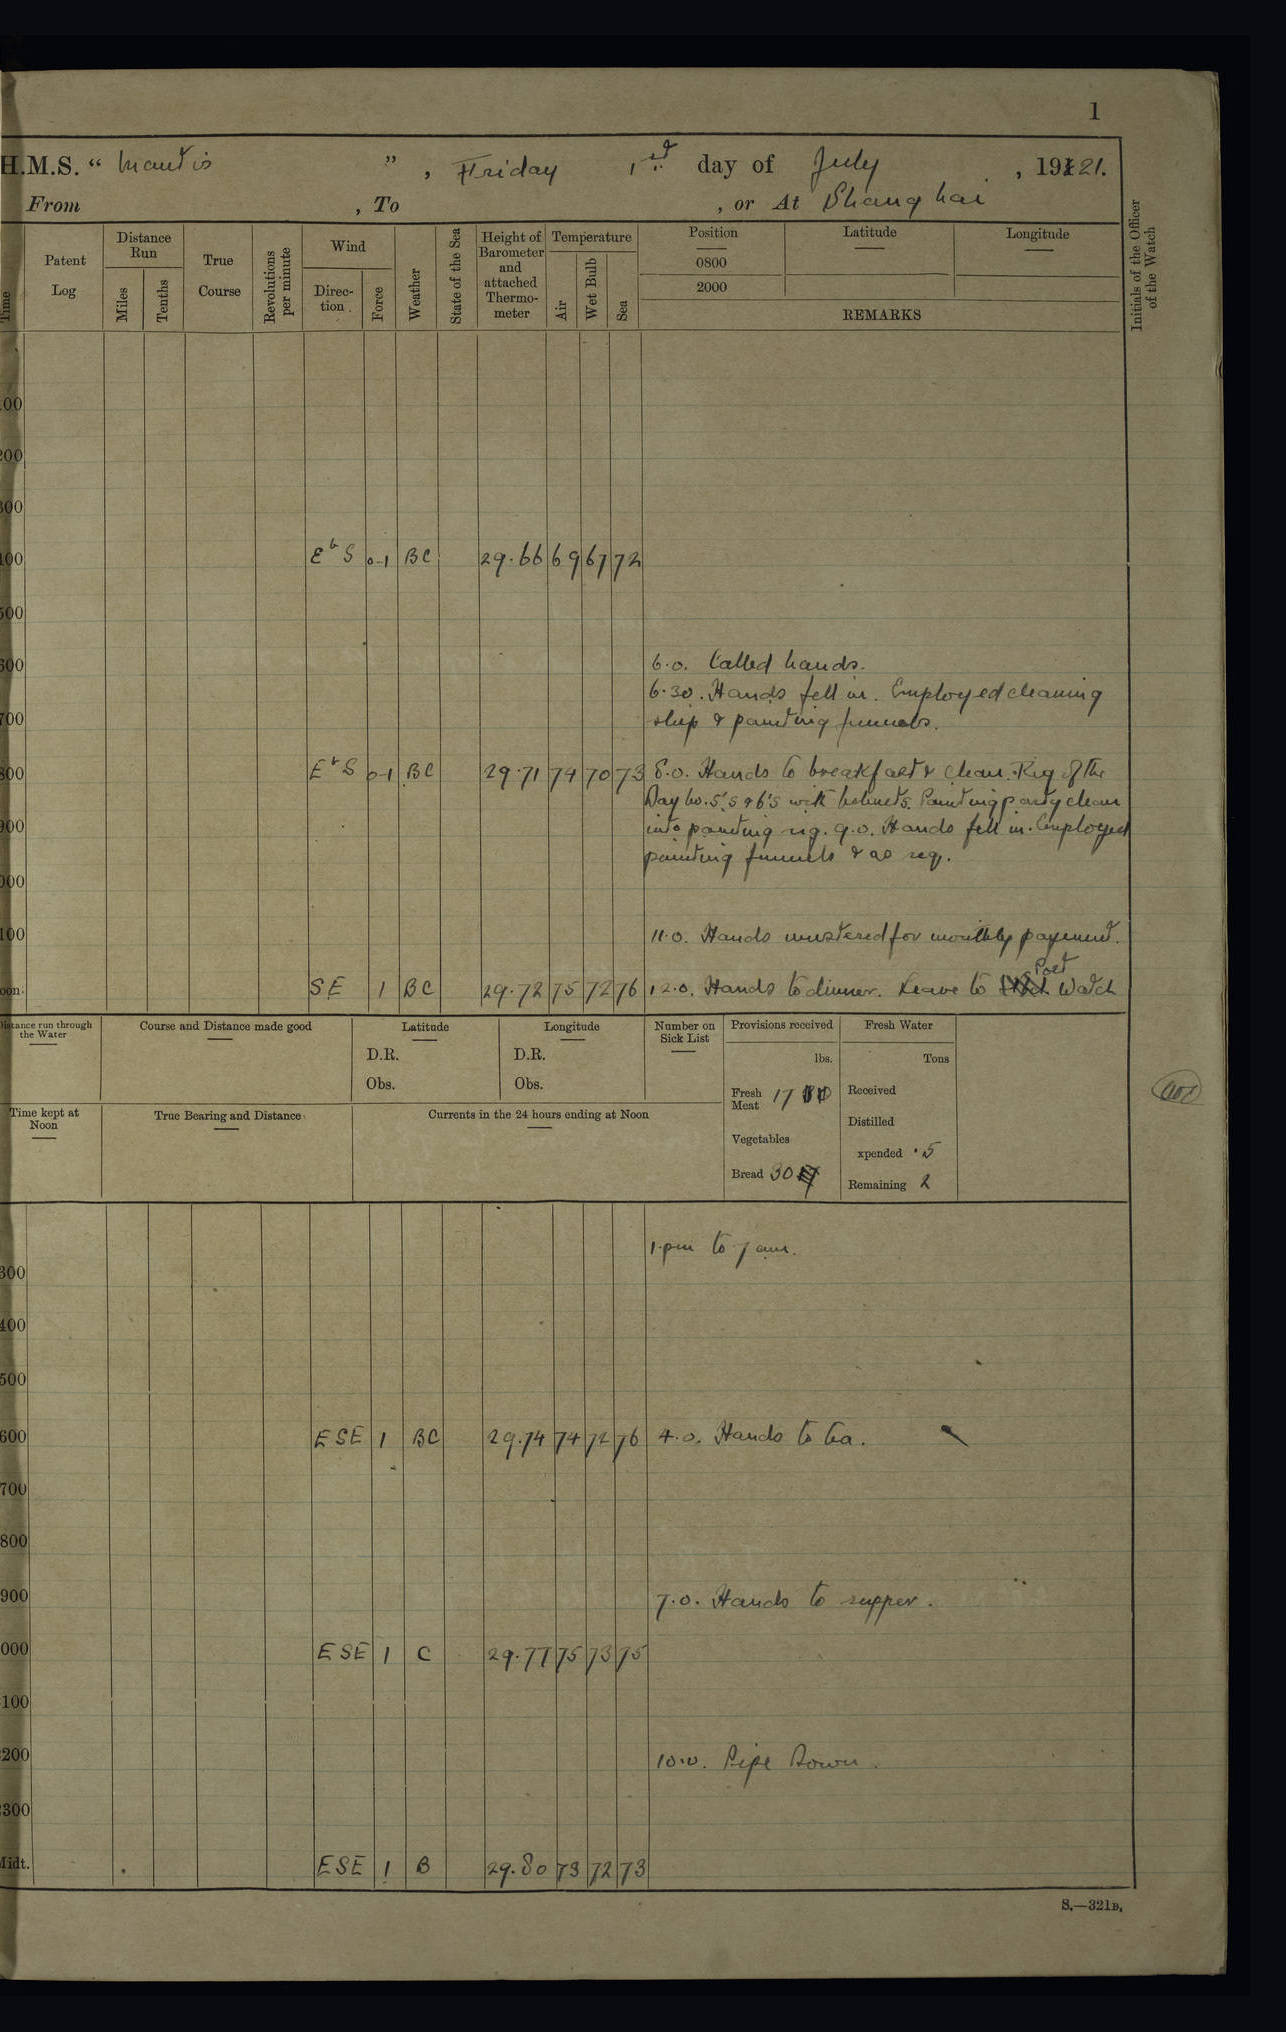 1
H.M.S. “ Mantis ” , Friday 1st day of July , 19121.
From , To , or At Shanghai
Time
Patent Log
Distance Run
Miles
Tenths
True Course
Revolutions per minute
Wind
Direction
Force
Weather
State of the Sea
Height of Barometer and attached Thermometer
Temperature
Air
Wet Bulb
Sea
Position
0800
2000
Latitude
Longitude
REMARKS
Initials of the Officer of the Watch
00
200
300
400 EbS 0-1 BC 29.66 69 67 72
500
600 6.0. Called hands.
6.30. Hands fell in. Employed cleaning
700 ship & painting funnels.
800 EbS 0-1 BC 29.71 74 70 73 8.0. Hands to breakfast & clean. Rig of the
Day No. 5's & 6's with helmets. Painting party clean
900 into painting rig. 9.0. Hands fell in. Employed
painting funnels & as req.
000
100 11.0. Hands mustered for monthly payment.
Port
oon. SE 1 BC 29.72 75 72 76 12.0. Hands to dinner. Leave to Watch
Distance run through the Water
Course and Distance made good
Latitude
D.R.
Obs.
Longitude
D.R.
Obs.
Number on Sick List
Provisions received
lbs.
Fresh Meat 17
Vegetables
Bread 30
Fresh Water
Tons
Received
Distilled
xpended .5
Remaining 2
Time kept at Noon
True Bearing and Distance
Currents in the 24 hours ending at Noon
1.pm to 7 am.
300
400
500
600 ESE 1 BC 29.74 74 72 76 4.0. Hands to tea.
700
800
900 7.0. Hands to supper.
000 ESE 1 C 29.77 75 73 75
100
200 10.0. Pipe Down.
300
Midt. ESE 1 B 29.80 73 72 73
S.—321B.